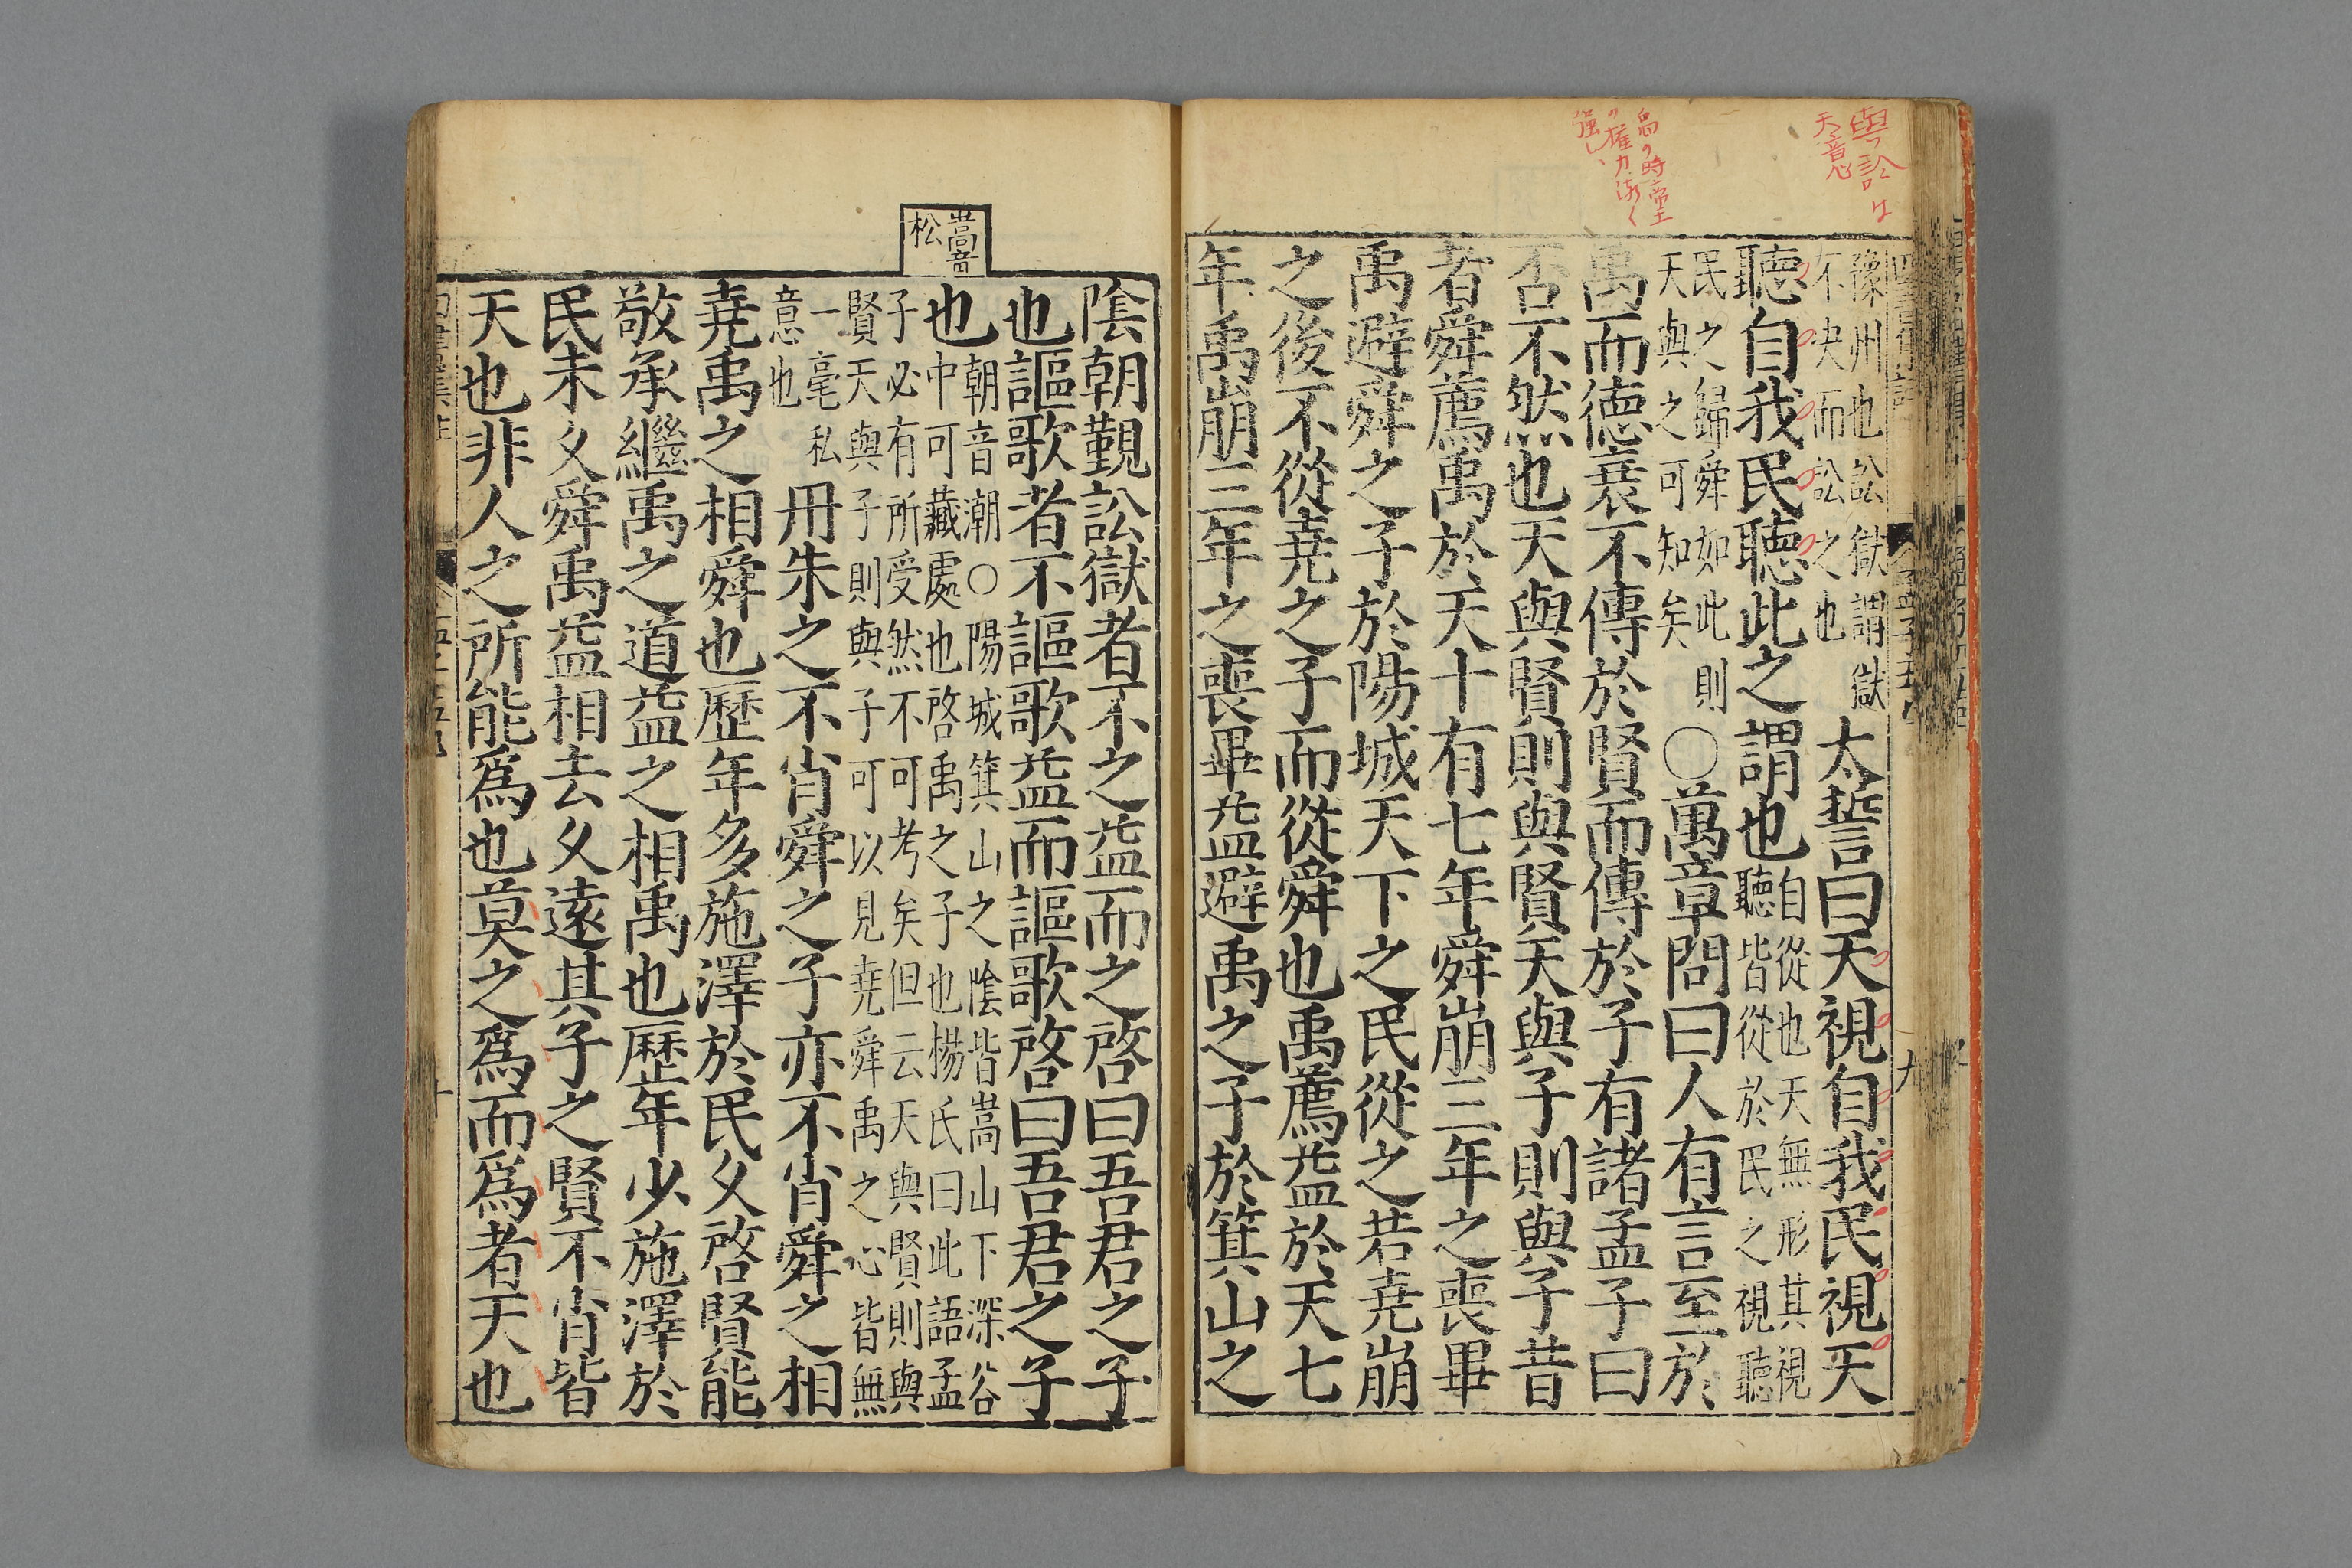 豫州也訟獄謂獄
不决而訟之也
太誓曰天視自我民視天
聽自我民聽此之謂也
自從也天無形其視
聽皆從於民之視聽
民之歸舜如此則
天與之可知矣
○萬章問曰人有言至於
禹而德衰不傳於賢而傳於子有諸孟子曰
否不然也天與賢則與賢天與子則與子昔
者舜薦禹於天十有七年舜崩三年之喪畢
禹避舜之子於陽城天下之民從之若堯崩
之後不從堯之子而從舜也禹薦益於天七
年禹崩三年之喪畢益避禹之子於箕山之
嵩音
松
陰朝覲訟獄者不之益而之啓曰吾君之子
也謳歌者不謳歌益而謳歌啓曰吾君之子
也
朝音潮○陽城箕山之陰皆嵩山下深谷
中可藏處也啓禹之子也楊氏曰此語孟
子必有所受然不可考矣但云天與賢則與
賢天與子則與子可以見堯舜禹之心皆無
一毫私
意也
丹朱之不肖舜之子亦不肖舜之相
堯禹之相舜也歷年多施澤於民久啓賢能
敬承繼禹之道益之相禹也歷年少施澤於
民未久舜禹益相去久遠其子之賢不肖皆
天也非人之所能爲也莫之爲而爲者天也